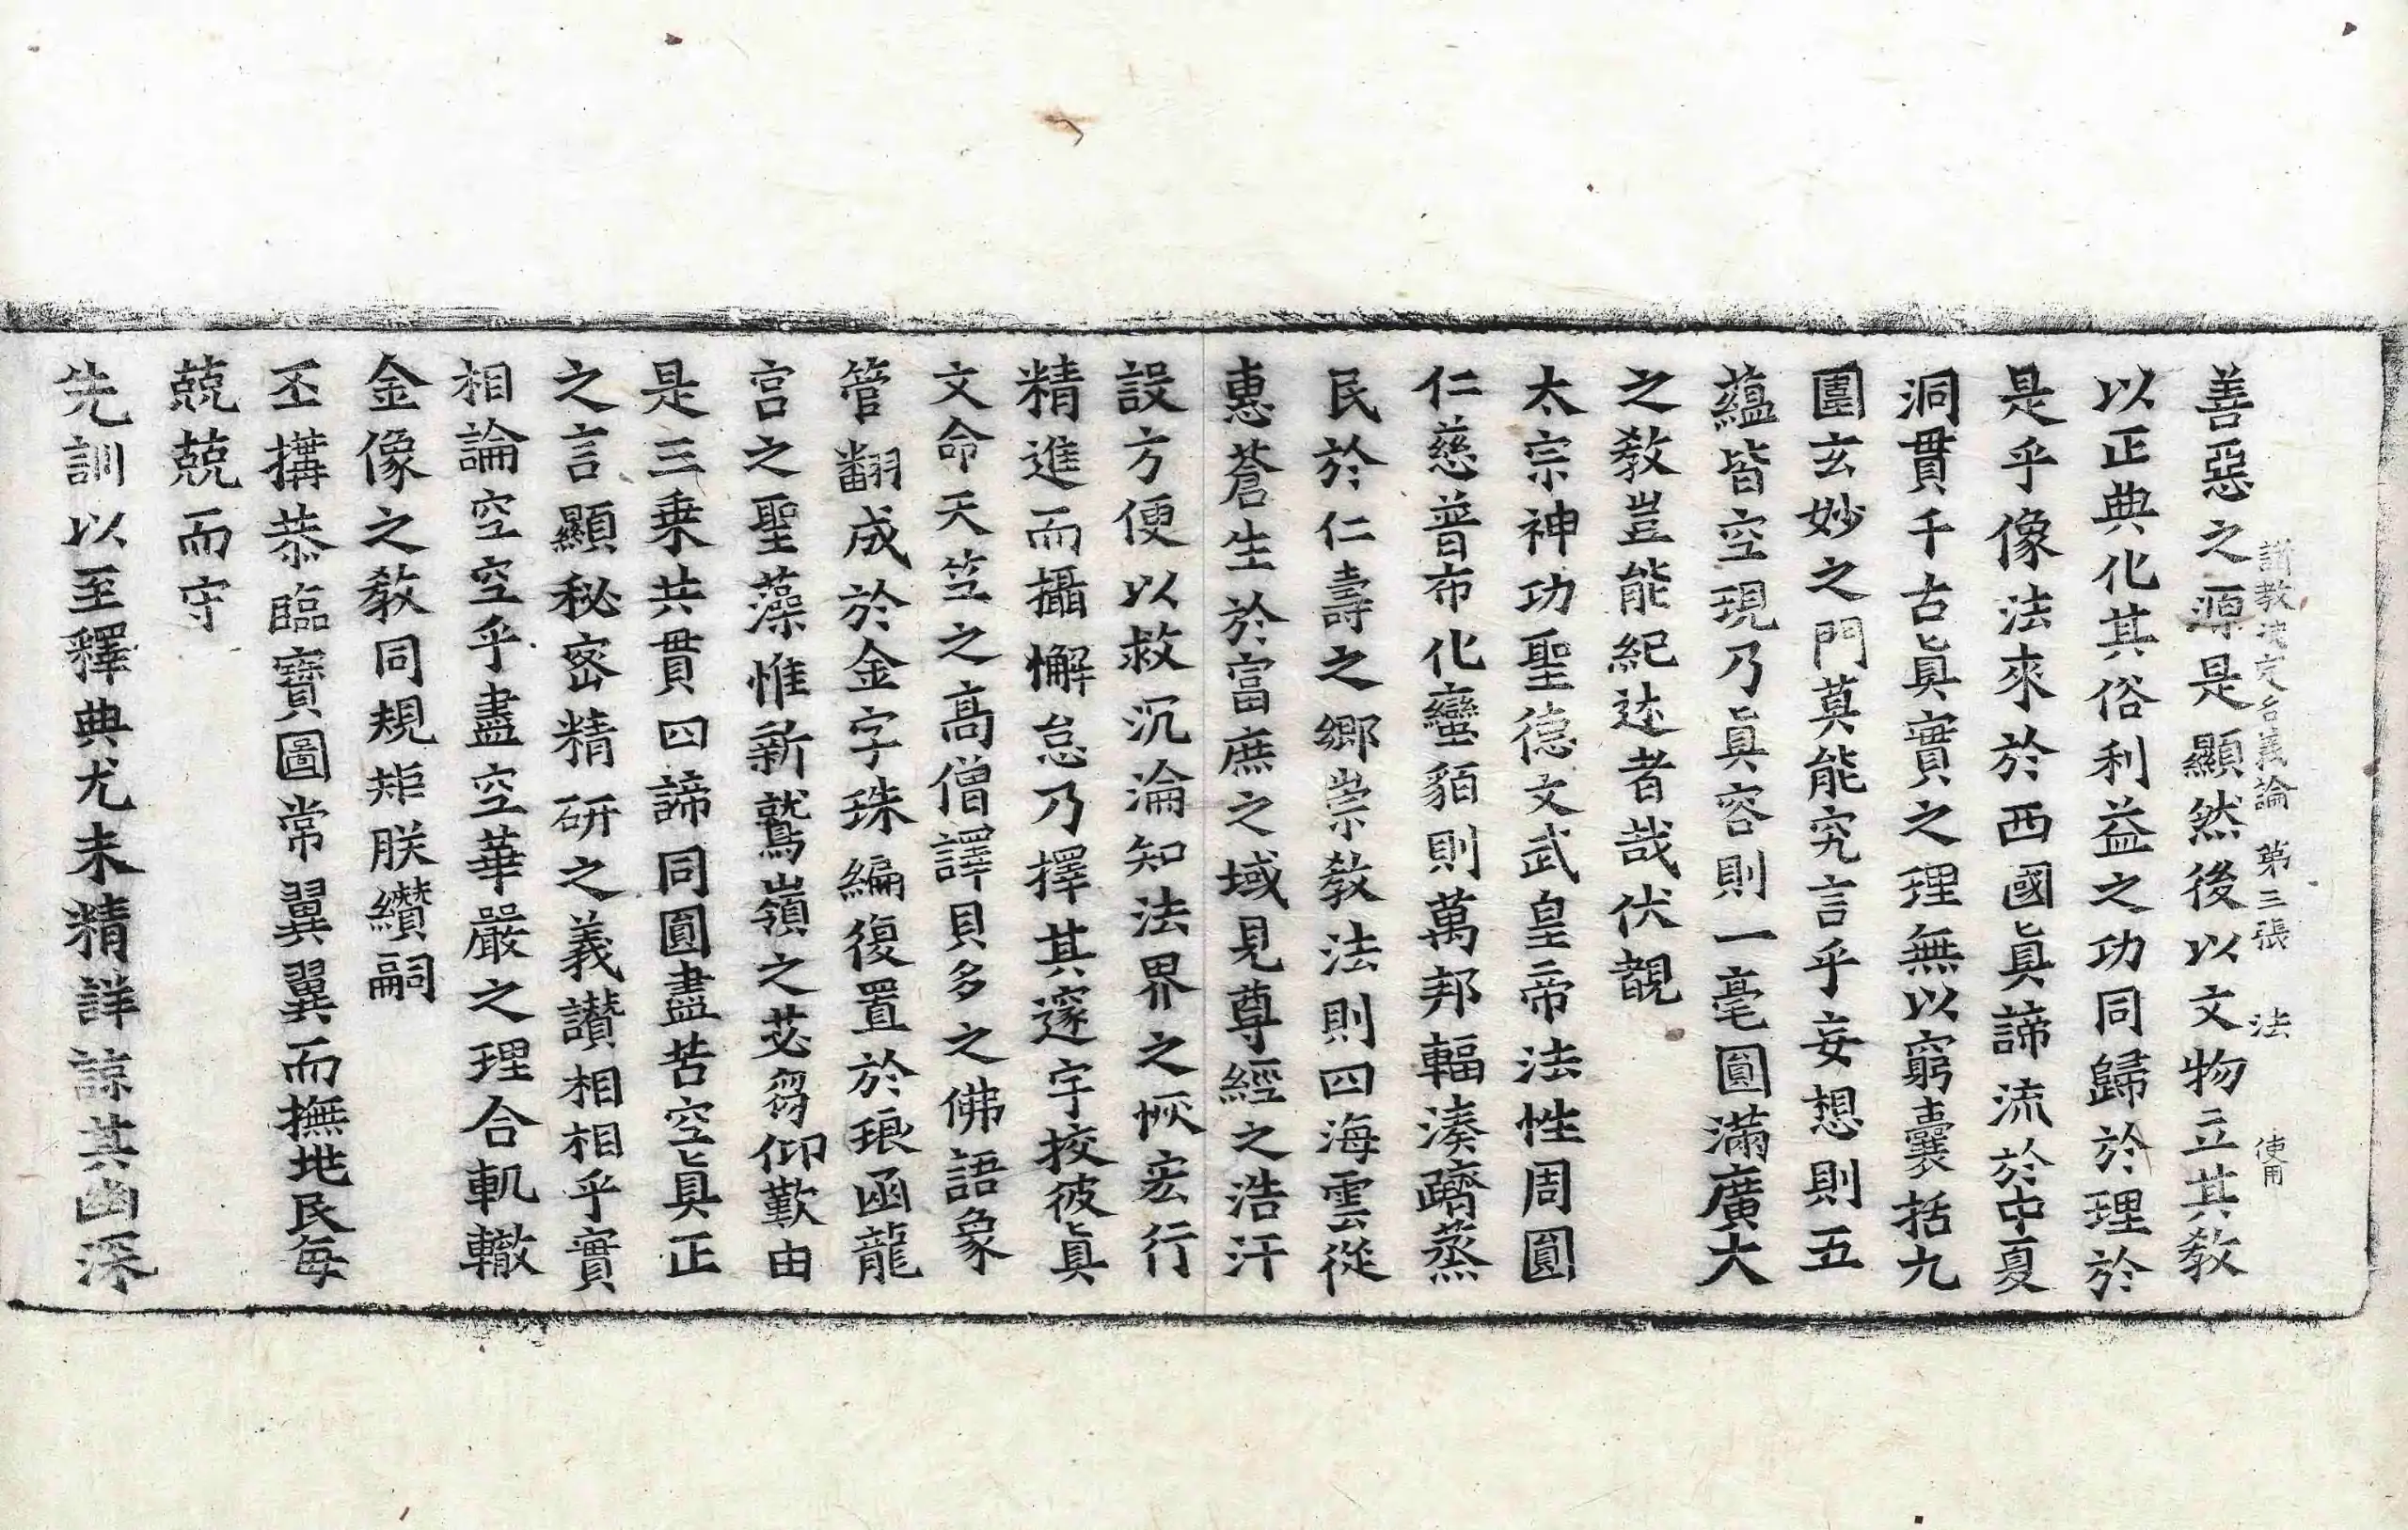 諸教決定名義論 第三張 法 使用
善惡之源是顯然後以文物立其教
以正典化其俗利益之功同歸於理於
是乎像法來於西國眞諦流於中夏
洞貫千古眞實之理無以窮囊括九
圍玄妙之門莫能究言乎妄想則五
蘊皆空現乃眞容則一毫圓滿廣大
之教豈能紀述者哉伏覩
太宗神功聖德文武皇帝法性周圓
仁慈普布化蠻貊則萬邦輻湊躋蒸
民於仁壽之鄉崇教法則四海雲從
惠蒼生於富庶之域見尊經之浩汗
設方便以救沉淪知法界之恢宏行
精進而攝懈怠乃擇其邃宇挍彼眞
文命天笁之高僧譯貝多之佛語象
管翻成於金字珠編復置於琅函龍
宮之聖藻惟新鷲嶺之苾芻仰歎由
是三乗共貫四諦同圓盡苦空眞正
之言顯秘密精研之義讚相相乎實
相論空空乎盡空華嚴之理合軌轍
金像之教同規矩朕纘嗣
丕搆恭臨寶圖常翼翼而撫兆民每
兢兢而守
先訓以至釋典尤未精詳諒其幽深